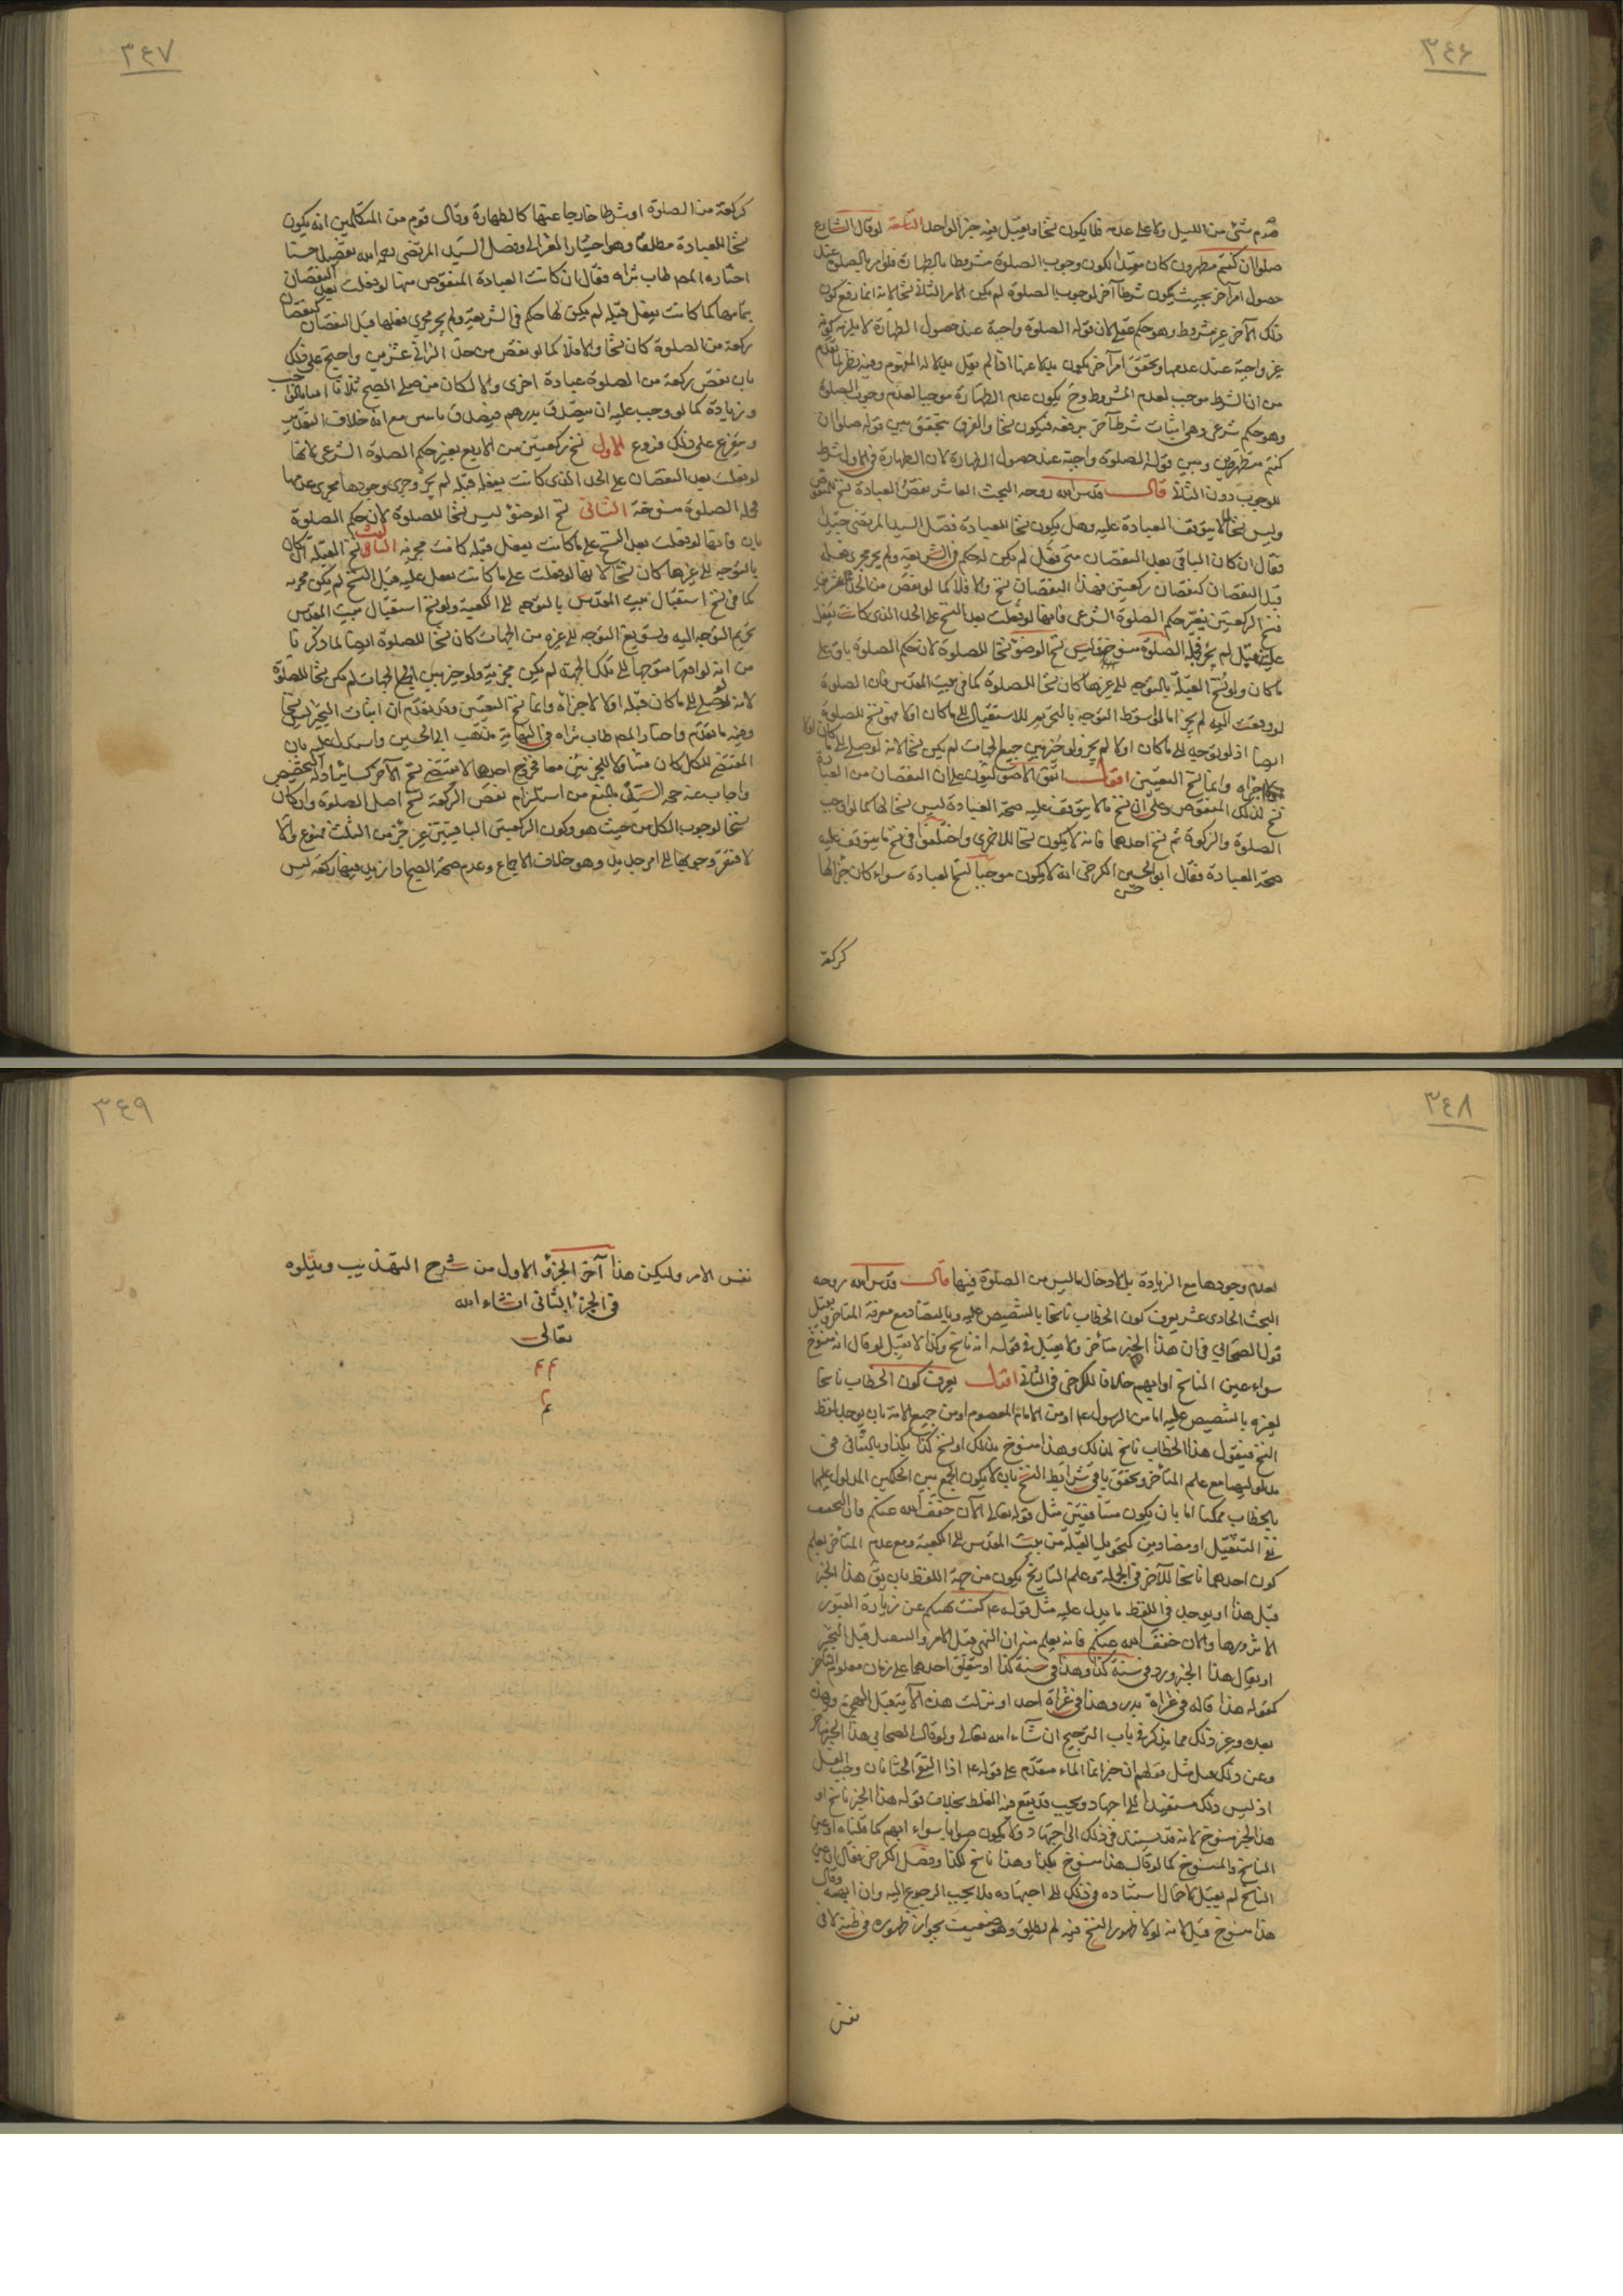 ٣٤٦
صوم شئ من الليل ولا على عدمه فلا يكون نسخا ويقبل فيه خبر الواحد التاسعة لو قال الشارع
صلوا ان كنتم متطهرين كان مفيدا لكون وجوب الصلوة مشروطا بالطهارة فلو امر بالصلوة عند
حصول امر آخر بحيث يكون شرطا آخر لوجوب الصلوة لم يكن الامر الثاني نسخا لانه انما رفع كون
ذلك الآخر غير مشروط وهو حكم عقلي لان قوله الصلوة واجبة عند حصول الطهارة لا يلزمه كونه
غير واجبة عند عدمها وتحقق امر آخر يكون بدلا عنها اذا لم يقل بدلالة المفهوم وفيه نظر لما تقدم
من ان الشرط موجب لعدم المشروط وح يكون عدم الطهارة موجبا لعدم وجوب الصلوة
وهو حكم شرعي وهي اثبات شرط آخر يرفعه فيكون نسخا والفرق يتحقق بين قوله صلوا ان
كنتم متطهرين وبين قوله الصلوة واجبة عند حصول الطهارة لان الطهارة في الاول شرط
للوجوب دون الثاني قال قدس الله روحه البحث العاشر نقص العبادة نسخ للمنقوص
وليس نسخا لما لا يتوقف العبادة عليه وهل يكون نسخا للعبادة فصّل السيد المرتضى جيدا
فقال ان كان الباقي بعد النقصان متى فعل لم يكن له حكم في الشريعة ولم يجر مجرى فعله
قبل النقصان كنقصان ركعتين فهذا النقصان نسخ والا فلا كما لو نقص من الحد عشرون
فنسخ الركعتين يغير حكم الصلوة الشرعي فانها لو فعلت بعد النسخ على الحد الذي كانت يفعل
عليه قبل لم يجز فجملة الصلوة منسوخة وليس نسخ الوضوء نسخا للصلوة لان حكم الصلوة باق على
ما كان ولو نسخ القبلة بالتوجه الى غيرها كان نسخا للصلوة كما في بيت المقدس فان الصلوة
لو وقعت اليه لم يجز اما لو سقط التوجه بالتخيير للاستقبال الى ما كان اولا فهو نسخ للصلوة
ايضا اذ لو توجه الى ما كان اولا لم يجز ولو خير بين جميع الجهات لم يكن نسخا لانه لو صلى الى ما كان اولا
لاجزأه وانما نسخ التعيين اقول اتفق الاصوليون على ان النقصان من العبادة
نسخ لذلك المنقوص وعلى ان نسخ ما لا يتوقف عليه صحة العبادة ليس نسخا لها كما لو اوجب
الصلوة والزكوة ثم نسخ احدهما فانه لا يكون نسخا للاخرى واختلفوا في نسخ ما يتوقف عليه
صحة العبادة فقال ابو الحسين الكرخي انه لا يكون موجبا لنسخ العبادة سواء كان جزءا لها
كركعة
٣٤٧
كركعة من الصلوة او شرطا خارجا عنها كالطهارة وقال قوم من المتكلمين انه يكون
نسخا للعبادة مطلقا وهو اختيار الغزالي وفصل السيد المرتضى رحمه الله تفصيلا حسنا
اختاره المصـ طاب ثراه فقال ان كانت العبادة المنقوص منها لو فعلت بعد النقصان
بتمامها كما كانت يفعل قبله لم يكن لها حكم في الشريعة ولم يجر مجرى فعلها قبل النقصان كنقصان
ركعة من الصلوة كان نسخا والا فلا كما لو نقص من حد الزاني عشرين واحتج على ذلك
بان نقص ركعة من الصلوة عبادة اخرى والا لكان من صلى الصبح ثلاثا
وزيادة كما لو وجب عليه ان يتصدق بدرهم فيصدق مع انه خلاف التقدير
ويتفرع على ذلك فروع الاول نسخ ركعتين من الاربع يغير حكم الصلوة الشرعي لانها
لو فعلت بعد النقصان على الحد الذي كانت يفعله قبله لم يجز وجرى وجودها مجرى عدمها
فجملة الصلوة منسوخة الثاني نسخ الوضوء ليس نسخا للصلوة لان حكم الصلوة
باق فانها لو فعلت بعد النسخ على ما كانت يفعل قبله كانت مجزية الثالث نسخ القبلة ان كان
بالتوجه الى غيرها كان نسخا لانها لو فعلت على ما كانت يفعل عليه قبل النسخ لم يكن مجزية
كما في نسخ استقبال بيت المقدس بالتوجه الى الكعبة ولو نسخ استقبال بيت المقدس
بتحريم التوجه اليه وتسويغ التوجه الى غيره من الجهات كان نسخا للصلوة ايضا لما ذكرنا
من انه لو اوقعها متوجها الى تلك الجهة لم يكن مجزية ولو خير بين الجهات لم يكن نسخا للصلوة
لانه لو صلى الى ما كان قبله اولا لاجزأه وانما نسخ التعيين وقد تقدم ان اثبات التخيير ليس نسخا
وفيه ما تقدم واختار المصـ طاب ثراه في النهاية مذهب ابي الحسين واستدل عليه بان
المقتضي للكل كان متناولا للجزئين معا فخروج احدهما لا يقتضي نسخ الآخر كسائر ادلة التخصيص
واجاب عن حجة السيد بالمنع من استلزام نقص الركعة نسخ اصل الصلوة وان كان
نسخا لوجوب الكل من حيث هو وكون الركعتين الباقيتين غير جزء من الثلث ممنوع والا
لافتقر وجوبها الى امر جديد وهو خلاف الاجماع وعدم صحة الصبح اذا زيد فيها ركعة ليس
٣٤٨
لعدم وجودها مع الزيادة بل لادخال ما ليس من الصلوة فيها قال قدس الله روحه
البحث الحادي عشر يعرف كون الخطاب ناسخا بالتنصيص عليه وبالتضاد مع معرفة المتأخر ويقبل
قول الصحابي في ان هذا الخبر متأخر ولا يقبل في قوله انه ناسخ وكذا لا يقبل لو قال انه منسوخ
سواء عين الناسخ او ابهم خلافا للكرخي في الثاني اقول يعرف كون الخطاب ناسخا
لغيره بالتنصيص عليه اما من الرسول ع او من الامام المعصوم او من جميع الامة بان يوجد لفظ
النسخ فيقول هذا الخطاب ناسخ لذلك وهذا منسوخ بذلك او نسخ كذا بكذا وبالتنافي في
مدلوليهما مع علم المتأخر وتحقق باقي شرايط النسخ بان لا يكون الجمع بين الحكمين المدلول عليهما
بالخطاب ممكنا اما بان يكون متنافيين مثل قوله تعالى الآن خفف الله عنكم فان التخفيف
نفي التثقيل او متضادين كتحويل القبلة من بيت المقدس الى الكعبة ومع عدم المتأخر يعلم
كون احدهما ناسخا للآخر في الجملة وعلم التاريخ يكون من جهة اللفظ بان يق هذا الخبر
قبل هذا او يوجد في اللفظ ما يدل عليه مثل قوله ع كنت نهيتكم عن زيارة القبور
الا فزوروها والآن خفف الله عنكم فانه يعلم منه ان النهي قبل الامر والتثقيل قبل التخفيف
او يقال هذا الخبر ورد في سنة كذا وهذا في سنة كذا او يتعلق احدهما على زمان معلوم التأخر
كقوله هذا قاله في غزاة بدر وهذا في غزاة احد او نزلت هذه الآية قبل الهجرة وهذه
بعدها وغير ذلك مما يذكر في باب الترجيح ان شاء الله تعالى ولو قال الصحابي هذا الخبر متأخر
وعن ذلك قبل مثل قولهم ان خبر انما الماء متقدم على قوله ع اذا التقى الختانان وجب الغسل
اذ ليس ذلك مستفيدا الى اجتهاد ويجب قد يقع فيه الغلط بخلاف قوله هذا الخبر ناسخ او
هذا الخبر منسوخ لانه قد يستند في ذلك الى اجتهاد ولا يكون صوابا سواء ابهم كما قلناه او عين
الناسخ والمنسوخ كما لو قال هذا منسوخ بكذا وهذا ناسخ لكذا وفصل الكرخي فقال ان عين
الناسخ لم يقبل لاحتمال استناده في ذلك الى اجتهاده فلا يجب الرجوع اليه وان ابهمه وقال
هذا منسوخ قبل لانه لولا ظهور النسخ فيه لم يطلق وهو ضعيف بجواز ظهوره في ظنه لا في
نفس
٣٤٩
نفس الامر وليكن هذا آخر الجزؤ الاول من شرح التهذيب ويتلوه
في الجزء الثاني انشاء الله
تعالى
م م
م